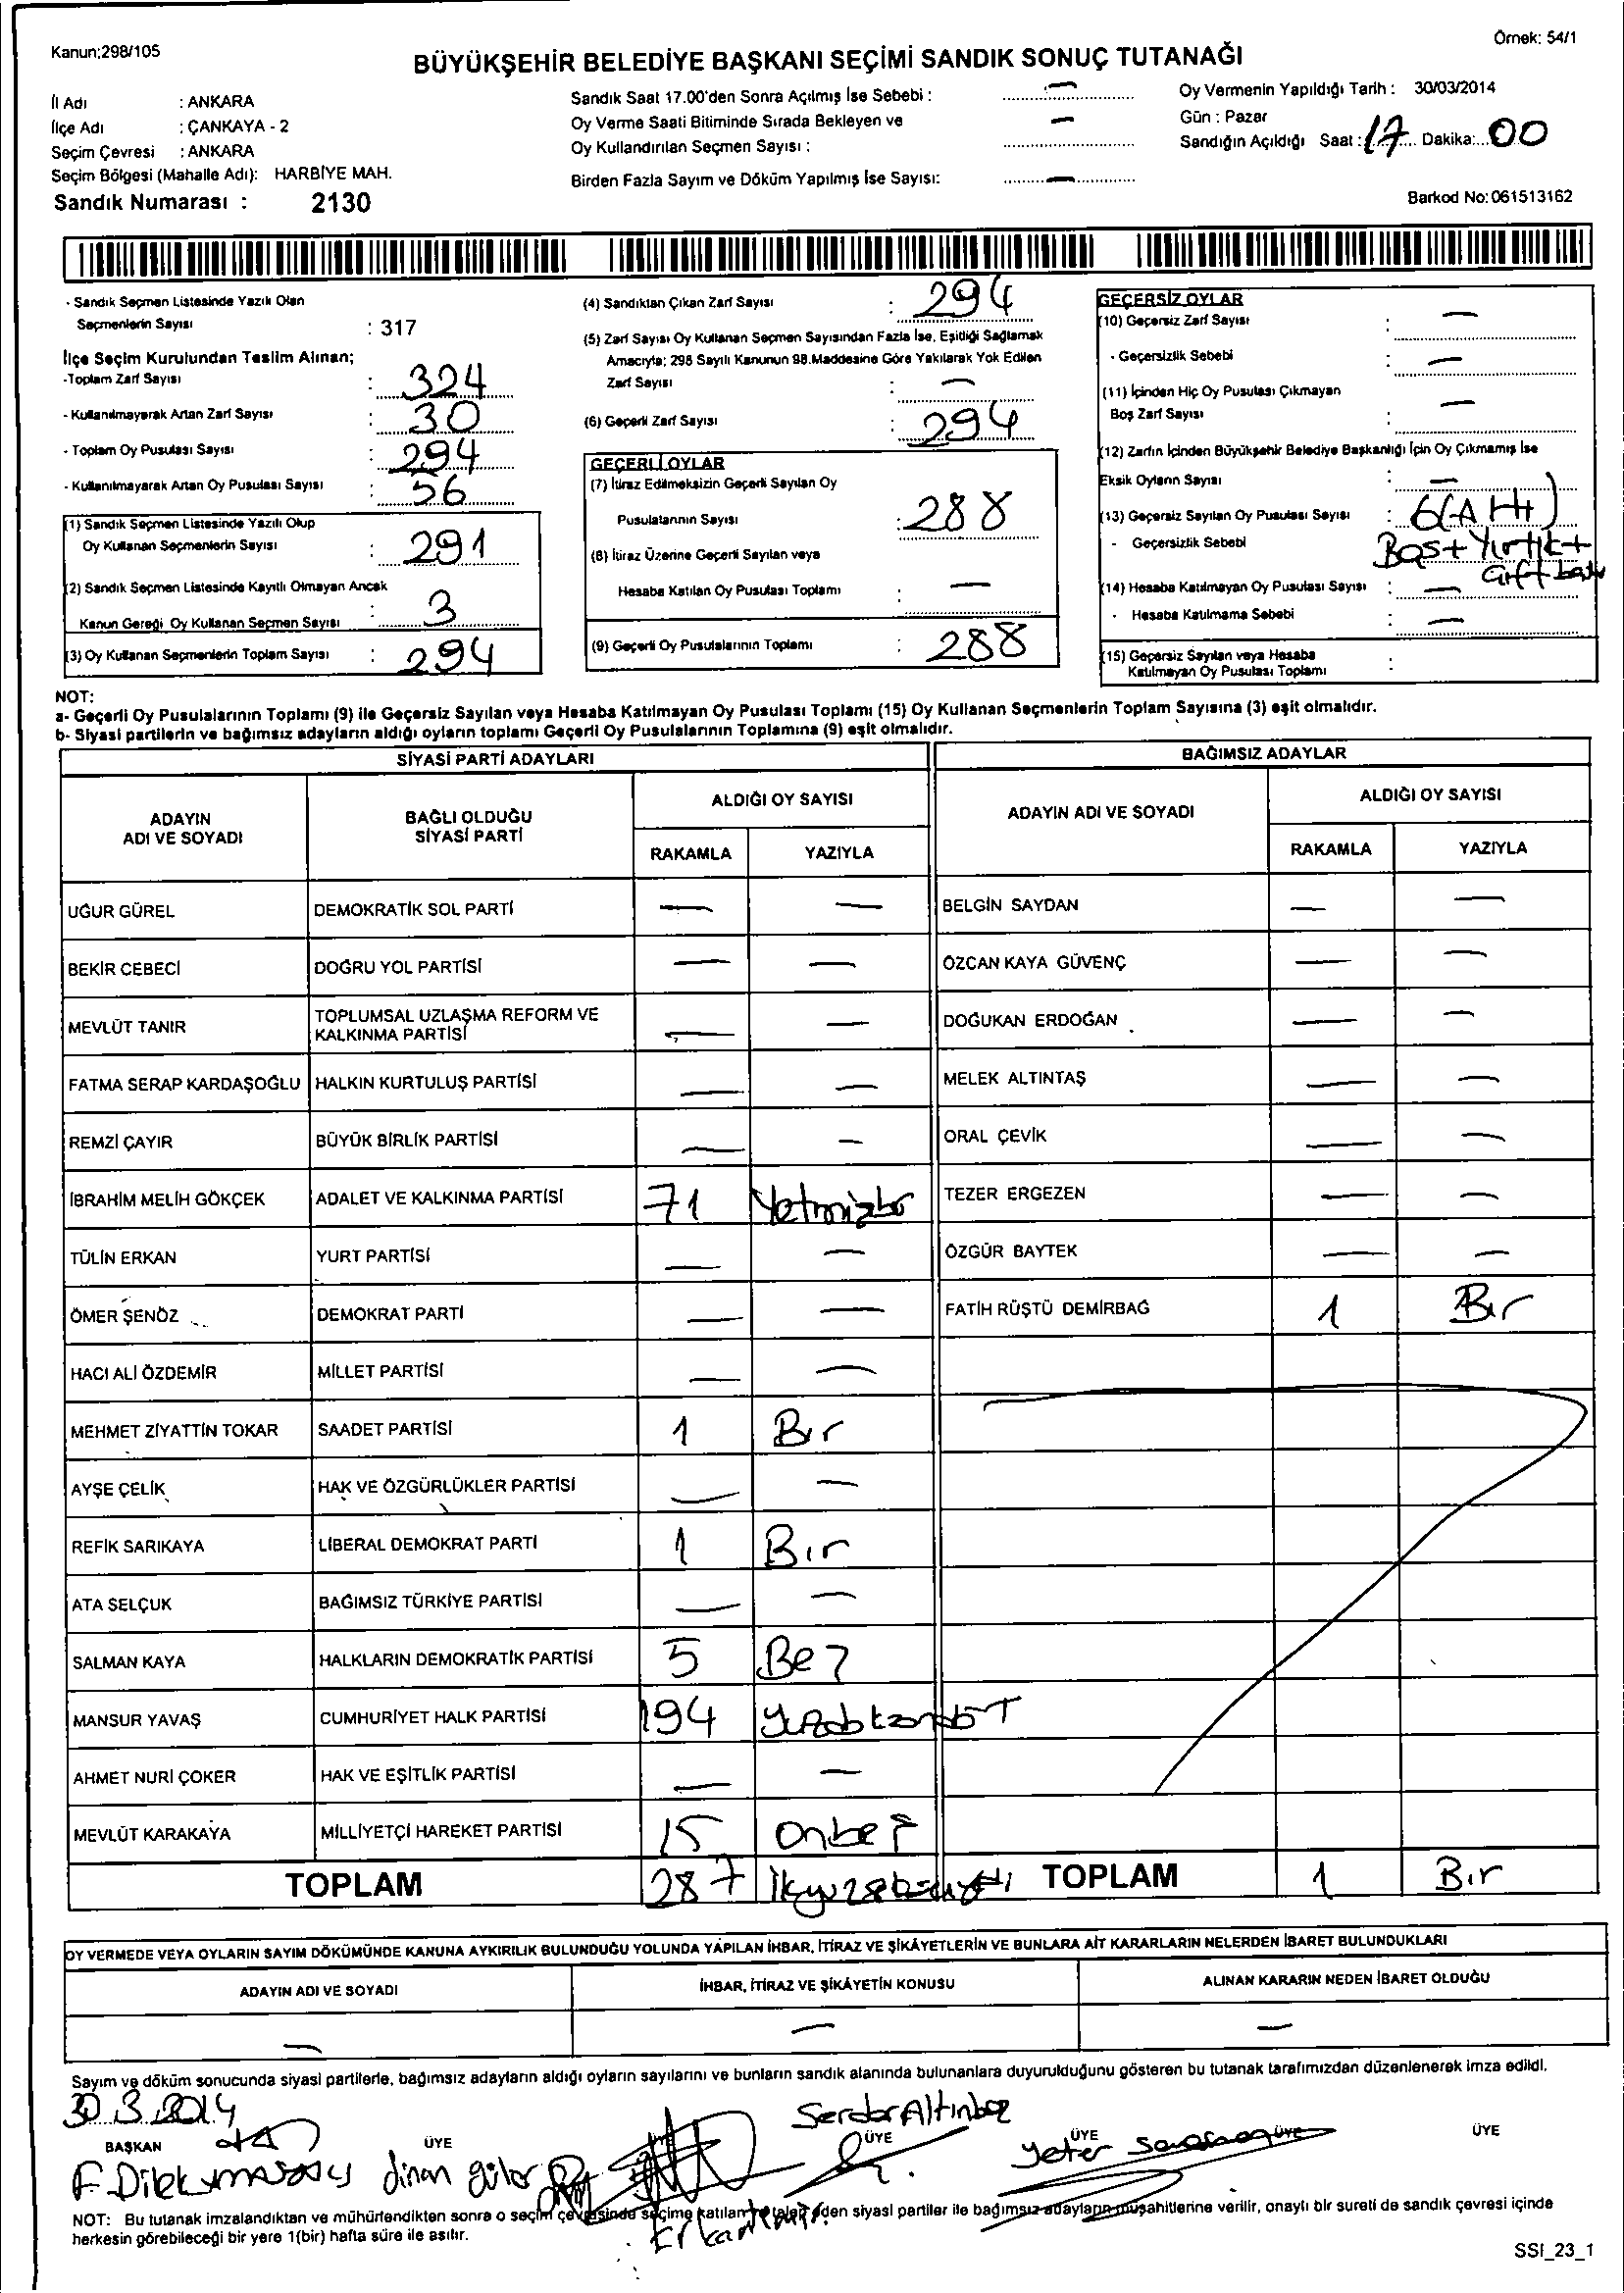 Kanun;298/105
Örnek: 54/1
BÜYÜKŞEHİR BELEDİYE BAŞKANI SEÇİMİ SANDIK SONUÇ TUTANAĞI
İl Adı : ANKARA
İlçe Adı : ÇANKAYA - 2
Seçim Çevresi : ANKARA
Seçim Bölgesi (Mahalle Adı): HARBİYE MAH.
Sandık Numarası : 2130
Sandık Saat 17.00'den Sonra Açılmış İse Sebebi : —
Oy Verme Saati Bitiminde Sırada Bekleyen ve
Oy Kullandırılan Seçmen Sayısı : —
Birden Fazla Sayım ve Döküm Yapılmış İse Sayısı: —
Oy Vermenin Yapıldığı Tarih : 30/03/2014
Gün : Pazar
Sandığın Açıldığı Saat : 17 Dakika: 00
Barkod No:061513162
- Sandık Seçmen Listesinde Yazılı Olan
Seçmenlerin Sayısı : 317
İlçe Seçim Kurulundan Teslim Alınan;
-Toplam Zarf Sayısı : 324
- Kullanılmayarak Artan Zarf Sayısı : 30
- Toplam Oy Pusulası Sayısı : 294
- Kullanılmayarak Artan Oy Pusulası Sayısı : 56
(1) Sandık Seçmen Listesinde Yazılı Olup
Oy Kullanan Seçmenlerin Sayısı : 291
(2) Sandık Seçmen Listesinde Kayıtlı Olmayan Ancak
Kanun Gereği Oy Kullanan Seçmen Sayısı : 3
(3) Oy Kullanan Seçmenlerin Toplam Sayısı : 294
(4) Sandıktan Çıkan Zarf Sayısı : 294
(5) Zarf Sayısı Oy Kullanan Seçmen Sayısından Fazla İse, Eşitliği Sağlamak
Amacıyla; 298 Sayılı Kanunun 98.Maddesine Göre Yakılarak Yok Edilen
Zarf Sayısı : —
(6) Geçerli Zarf Sayısı : 294
GEÇERLİ OYLAR
(7) İtiraz Edilmeksizin Geçerli Sayılan Oy
Pusulalarının Sayısı : 288
(8) İtiraz Üzerine Geçerli Sayılan veya
Hesaba Katılan Oy Pusulası Toplamı : —
(9) Geçerli Oy Pusulalarının Toplamı : 288
GEÇERSİZ OYLAR
(10) Geçersiz Zarf Sayısı : —
- Geçersizlik Sebebi : —
(11) İçinden Hiç Oy Pusulası Çıkmayan
Boş Zarf Sayısı : —
(12) Zarfın İçinden Büyükşehir Belediye Başkanlığı İçin Oy Çıkmamış İse
Eksik Oyların Sayısı : —
(13) Geçersiz Sayılan Oy Pusulası Sayısı : 6(Altı)
- Geçersizlik Sebebi Boş+Yırtık+
Çift bası
(14) Hesaba Katılmayan Oy Pusulası Sayısı : —
- Hesaba Katılmama Sebebi : —
(15) Geçersiz Sayılan veya Hesaba
Katılmayan Oy Pusulası Toplamı :
NOT:
a- Geçerli Oy Pusulalarının Toplamı (9) ile Geçersiz Sayılan veya Hesaba Katılmayan Oy Pusulası Toplamı (15) Oy Kullanan Seçmenlerin Toplam Sayısına (3) eşit olmalıdır.
b- Siyasi partilerin ve bağımsız adayların aldığı oyların toplamı Geçerli Oy Pusulalarının Toplamına (9) eşit olmalıdır.
SİYASİ PARTİ ADAYLARI
BAĞIMSIZ ADAYLAR
ADAYIN
ADI VE SOYADI
BAĞLI OLDUĞU
SİYASİ PARTİ
ALDIĞI OY SAYISI
RAKAMLA YAZIYLA
ADAYIN ADI VE SOYADI
ALDIĞI OY SAYISI
RAKAMLA YAZIYLA
UĞUR GÜREL DEMOKRATİK SOL PARTİ — — BELGİN SAYDAN — —
BEKİR CEBECİ DOĞRU YOL PARTİSİ — — ÖZCAN KAYA GÜVENÇ — —
MEVLÜT TANIR TOPLUMSAL UZLAŞMA REFORM VE
KALKINMA PARTİSİ — — DOĞUKAN ERDOĞAN — —
FATMA SERAP KARDAŞOĞLU HALKIN KURTULUŞ PARTİSİ — — MELEK ALTINTAŞ — —
REMZİ ÇAYIR BÜYÜK BİRLİK PARTİSİ — — ORAL ÇEVİK — —
İBRAHİM MELİH GÖKÇEK ADALET VE KALKINMA PARTİSİ 71 Yetmişbir TEZER ERGEZEN — —
TÜLİN ERKAN YURT PARTİSİ — — ÖZGÜR BAYTEK — —
ÖMER ŞENÖZ DEMOKRAT PARTİ — — FATİH RÜŞTÜ DEMİRBAĞ 1 Bir
HACI ALİ ÖZDEMİR MİLLET PARTİSİ — —
MEHMET ZİYATTİN TOKAR SAADET PARTİSİ 1 Bir
AYŞE ÇELİK HAK VE ÖZGÜRLÜKLER PARTİSİ — —
REFİK SARIKAYA LİBERAL DEMOKRAT PARTİ 1 Bır
ATA SELÇUK BAĞIMSIZ TÜRKİYE PARTİSİ — —
SALMAN KAYA HALKLARIN DEMOKRATİK PARTİSİ 5 Beş
MANSUR YAVAŞ CUMHURİYET HALK PARTİSİ 194 Yüzdoksandört
AHMET NURİ ÇOKER HAK VE EŞİTLİK PARTİSİ — —
MEVLÜT KARAKAYA MİLLİYETÇİ HAREKET PARTİSİ 15 Onbeş
TOPLAM 287 İkiyüzseksenyedi TOPLAM 1 Bir
OY VERMEDE VEYA OYLARIN SAYIM DÖKÜMÜNDE KANUNA AYKIRILIK BULUNDUĞU YOLUNDA YAPILAN İHBAR, İTİRAZ VE ŞİKÂYETLERİN VE BUNLARA AİT KARARLARIN NELERDEN İBARET BULUNDUKLARI
ADAYIN ADI VE SOYADI İHBAR, İTİRAZ VE ŞİKÂYETİN KONUSU ALINAN KARARIN NEDEN İBARET OLDUĞU
— — —
Sayım ve döküm sonucunda siyasi partilerle, bağımsız adayların aldığı oyların sayılarını ve bunların sandık alanında bulunanlara duyurulduğunu gösteren bu tutanak tarafımızdan düzenlenerek imza edildi.
30.3.2014 Serdar
BAŞKAN ÜYE ÜYE ÜYE ÜYE ÜYE
F. Dilek güler Yeter
NOT: Bu tutanak imzalandıktan ve mühürlendikten sonra o seçim çevresinde seçime katılan ve talep eden siyasi partiler ile bağımsız adayların müşahitlerine verilir, onaylı bir sureti de sandık çevresi içinde
herkesin görebileceği bir yere 1(bir) hafta süre ile asılır.
SSI_23_1